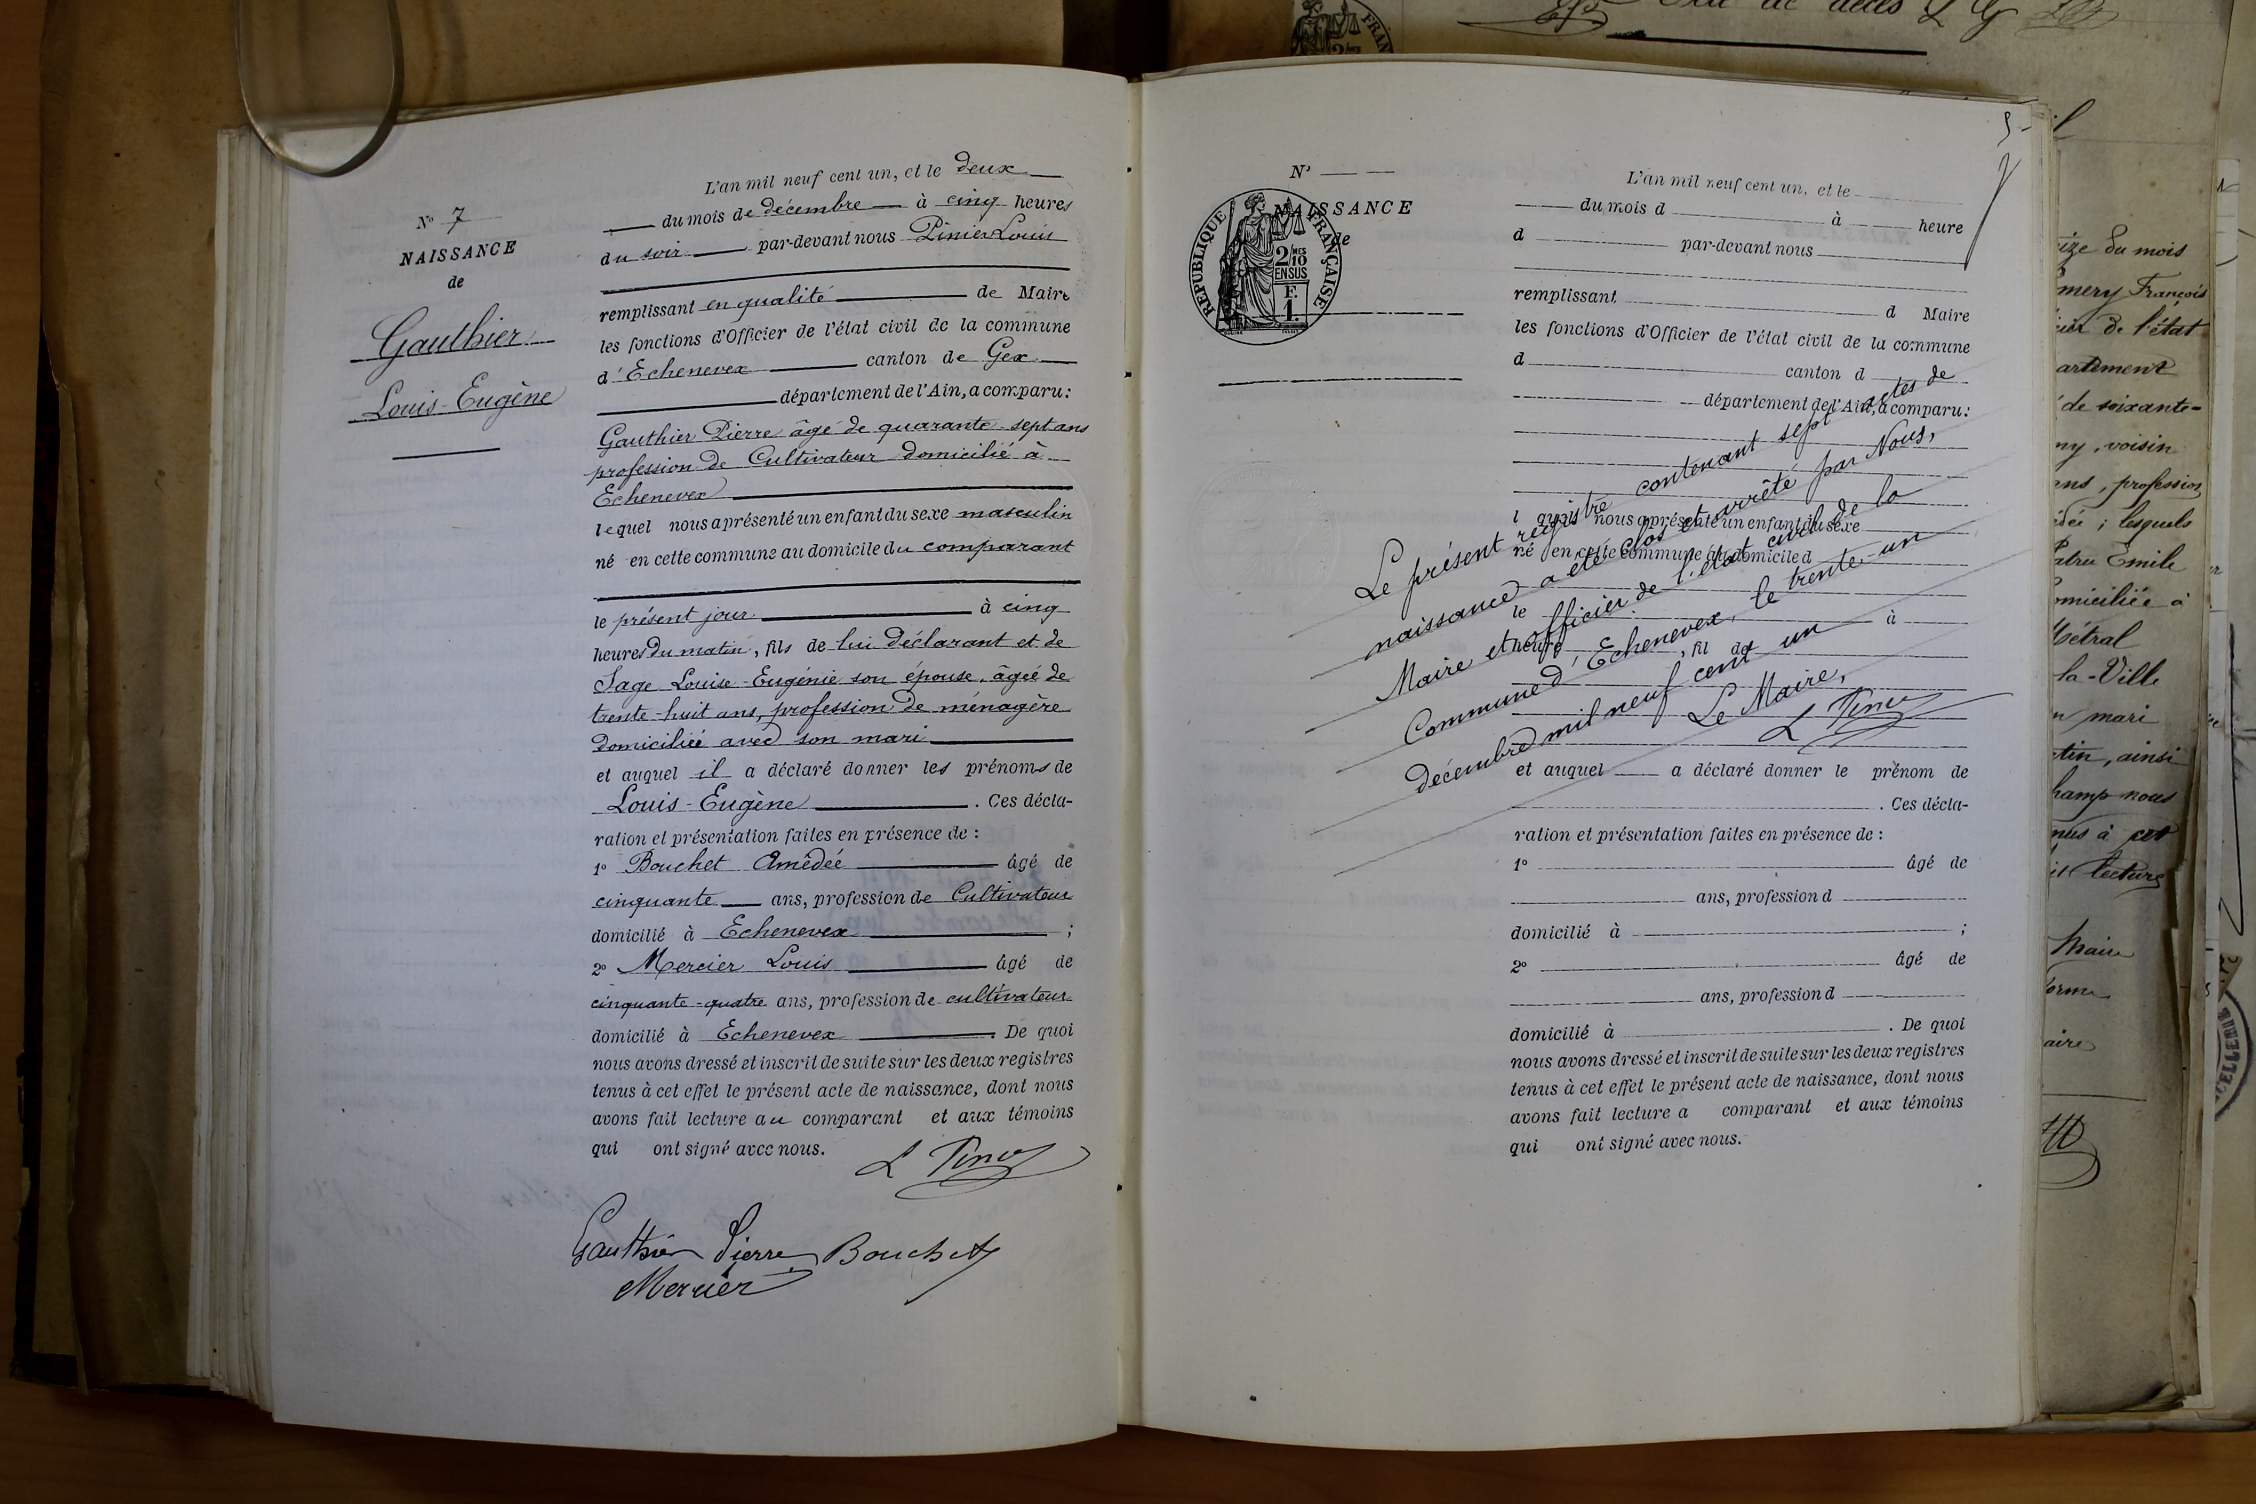 N° 7
NAISSANCE
de
Gauthier
Louis-Eugène
L'an mil neuf cent un, et le deux
du mois de décembre à cinq heures
du soir par-devant nous Pinier Louis
remplissant en qualité de Maire
les fonctions d'Officier de l'état civil de la commune
d'Echenevex canton de Gex
département de l'Ain, a comparu:
Gauthier Pierre âgé de quarante-sept ans
profession de Cultivateur domicilié à
Echenevex
lequel nous a présenté un enfant du sexe masculin
né en cette commune au domicile du comparant
le présent jour à cinq
heures du matin, fils de lui déclarant et de
Sage Louise-Eugénie son épouse, âgée de
trente-huit ans, profession de ménagère
domiciliée avec son mari
et auquel il a déclaré donner les prénoms de
Louis-Eugène. Ces décla-
ration et présentation faites en présence de :
1° Bouchet Amédée âgé de
cinquante ans, profession de Cultivateur
domicilié à Echenevex ;
2° Mercier Louis âgé de
cinquante-quatre ans, profession de cultivateur
domicilié à Echenevex. De quoi
nous avons dressé et inscrit de suite sur les deux registres
tenus à cet effet le présent acte de naissance, dont nous
avons fait lecture au comparant et aux témoins
qui ont signé avec nous.
Gauthier Pierre Bouchet
Mercier
N°
NAISSANCE
de
RÉPUBLIQUE FRANÇAISE
2/10 MES
EN SUS
F.
1.
L'an mil neuf cent un, et le
du mois d à heure
d par-devant nous
remplissant d Maire
les fonctions d'Officier de l'état civil de la commune
d canton d
département de l'Ain, a comparu:
l quel nous a présenté un enfant du sexe
né en cette commune au domicile d
le à
heure , fil de
et auquel a déclaré donner le prénom de
. Ces décla-
ration et présentation faites en présence de :
1° âgé de
ans, profession d
domicilié à ;
2° âgé de
ans, profession d
domicilié à . De quoi
nous avons dressé et inscrit de suite sur les deux registres
tenus à cet effet le présent acte de naissance, dont nous
avons fait lecture a comparant et aux témoins
qui ont signé avec nous.
Le présent registre contenant sept actes de
naissance a été clos et arrêté par Nous,
Maire et officier de l'état civil de la
Commune d'Echenevex, le trente-un
décembre mil neuf cent un
Le Maire,
du mois
François
de l'état
artement
de soixante-
ny, voisin
ans, profession
; lesquels
Emile
omiciliée à
Métral
la-Ville
mari
, ainsi
champ nous
à cet
lecture
Maire